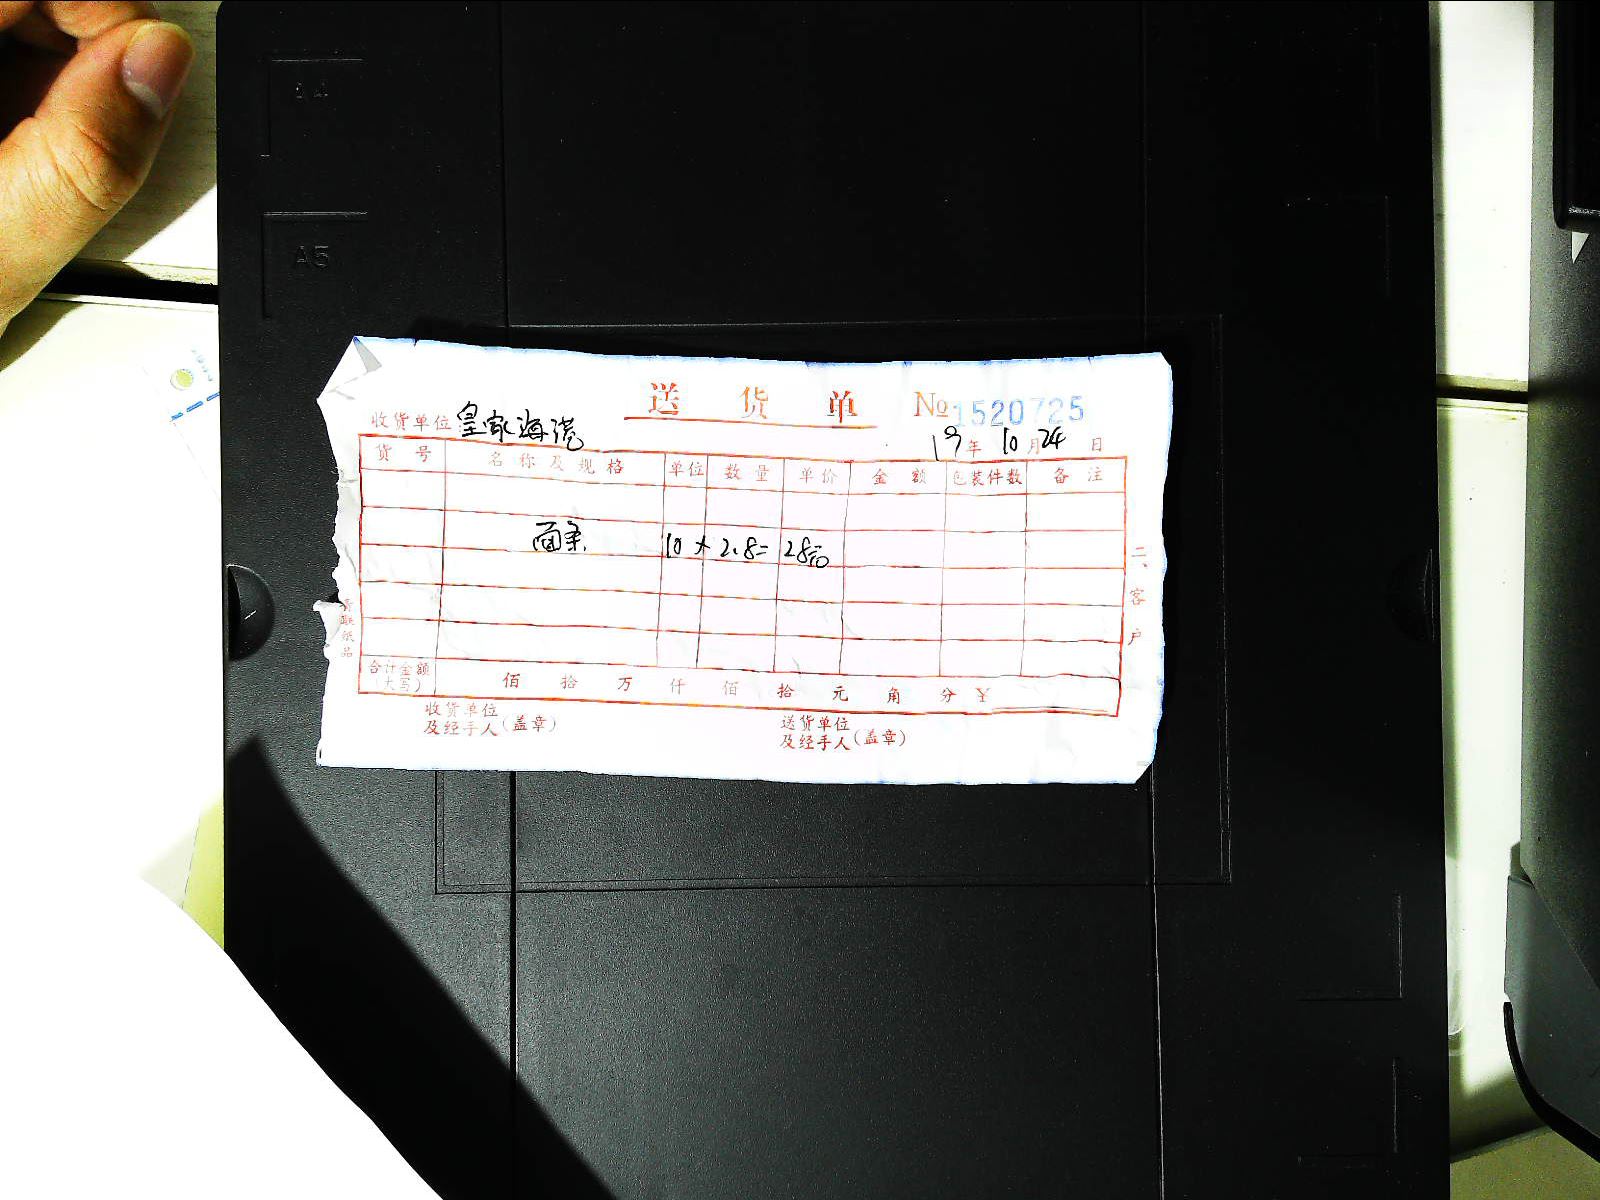 A4
A5
送货单 №1520725
收货单位 皇家海港
19年 10月24日
货号 名称及规格 单位 数量 单价 金额 包装件数 备注
面条 10 × 2.8= 28元
二、客户
合计金额(大写) 佰 拾 万 仟 佰 拾 元 角 分 ¥
收货单位 送货单位
及经手人(盖章) 及经手人(盖章)